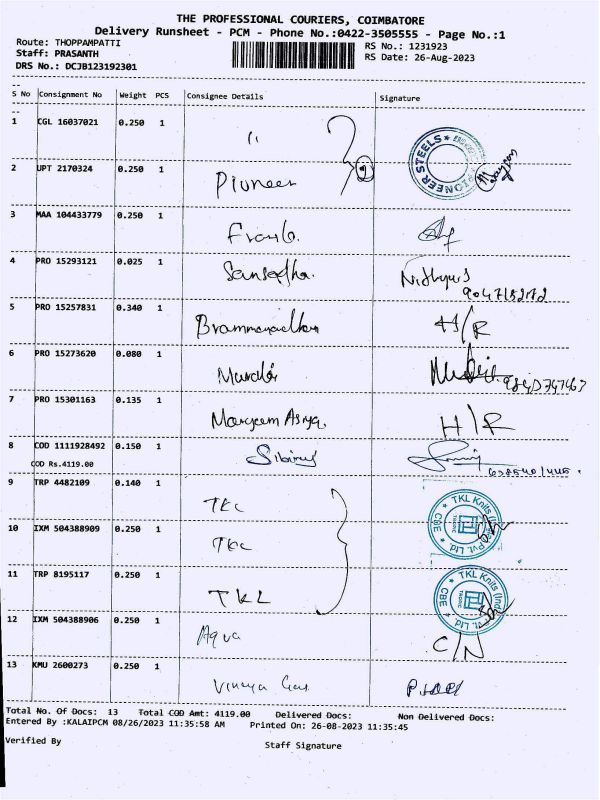 THE PROFESSIONAL COURIERS, COIMBATORE
Delivery Runsheet - PCM - Phone No.:0422-3505555 - Page No.:1
Route: THOPPAMPATTI
RS No.: 1231923
Staff: PRASANTH
RS Date: 26-Aug-2023
DRS No.: DCJB123192301
S No Consignment No Weight PCS Consignee Details Signature
1 CGL 16037021 0.250 1 "
PIONEER STEELS
2 UPT 2170324 0.250 1 Pioneer
3 MAA 104433779 0.250 1
4 PRO 15293121 0.025 1
5 PRO 15257831 0.340 1 H/R
6 PRO 15273620 0.080 1
7 PRO 15301163 0.135 1 H/R
8 COD 1111928492 0.150 1
COD Rs.4119.00
9 TRP 4482109 0.140 1 TKL
TKL Knits (India) Pvt. Ltd CBE
10 IXM 504388909 0.250 1 TKL
11 TRP 8195117 0.250 1 TKL
TKL Knits (India) Pvt. Ltd CBE
12 IXM 504388906 0.250 1 Aqua C/N
13 KMU 2600273 0.250 1
Total No. Of Docs: 13 Total COD Amt: 4119.00 Delivered Docs: Non Delivered Docs:
Entered By :KALAIPCM 08/26/2023 11:35:58 AM Printed On: 26-08-2023 11:35:45
Verified By Staff Signature